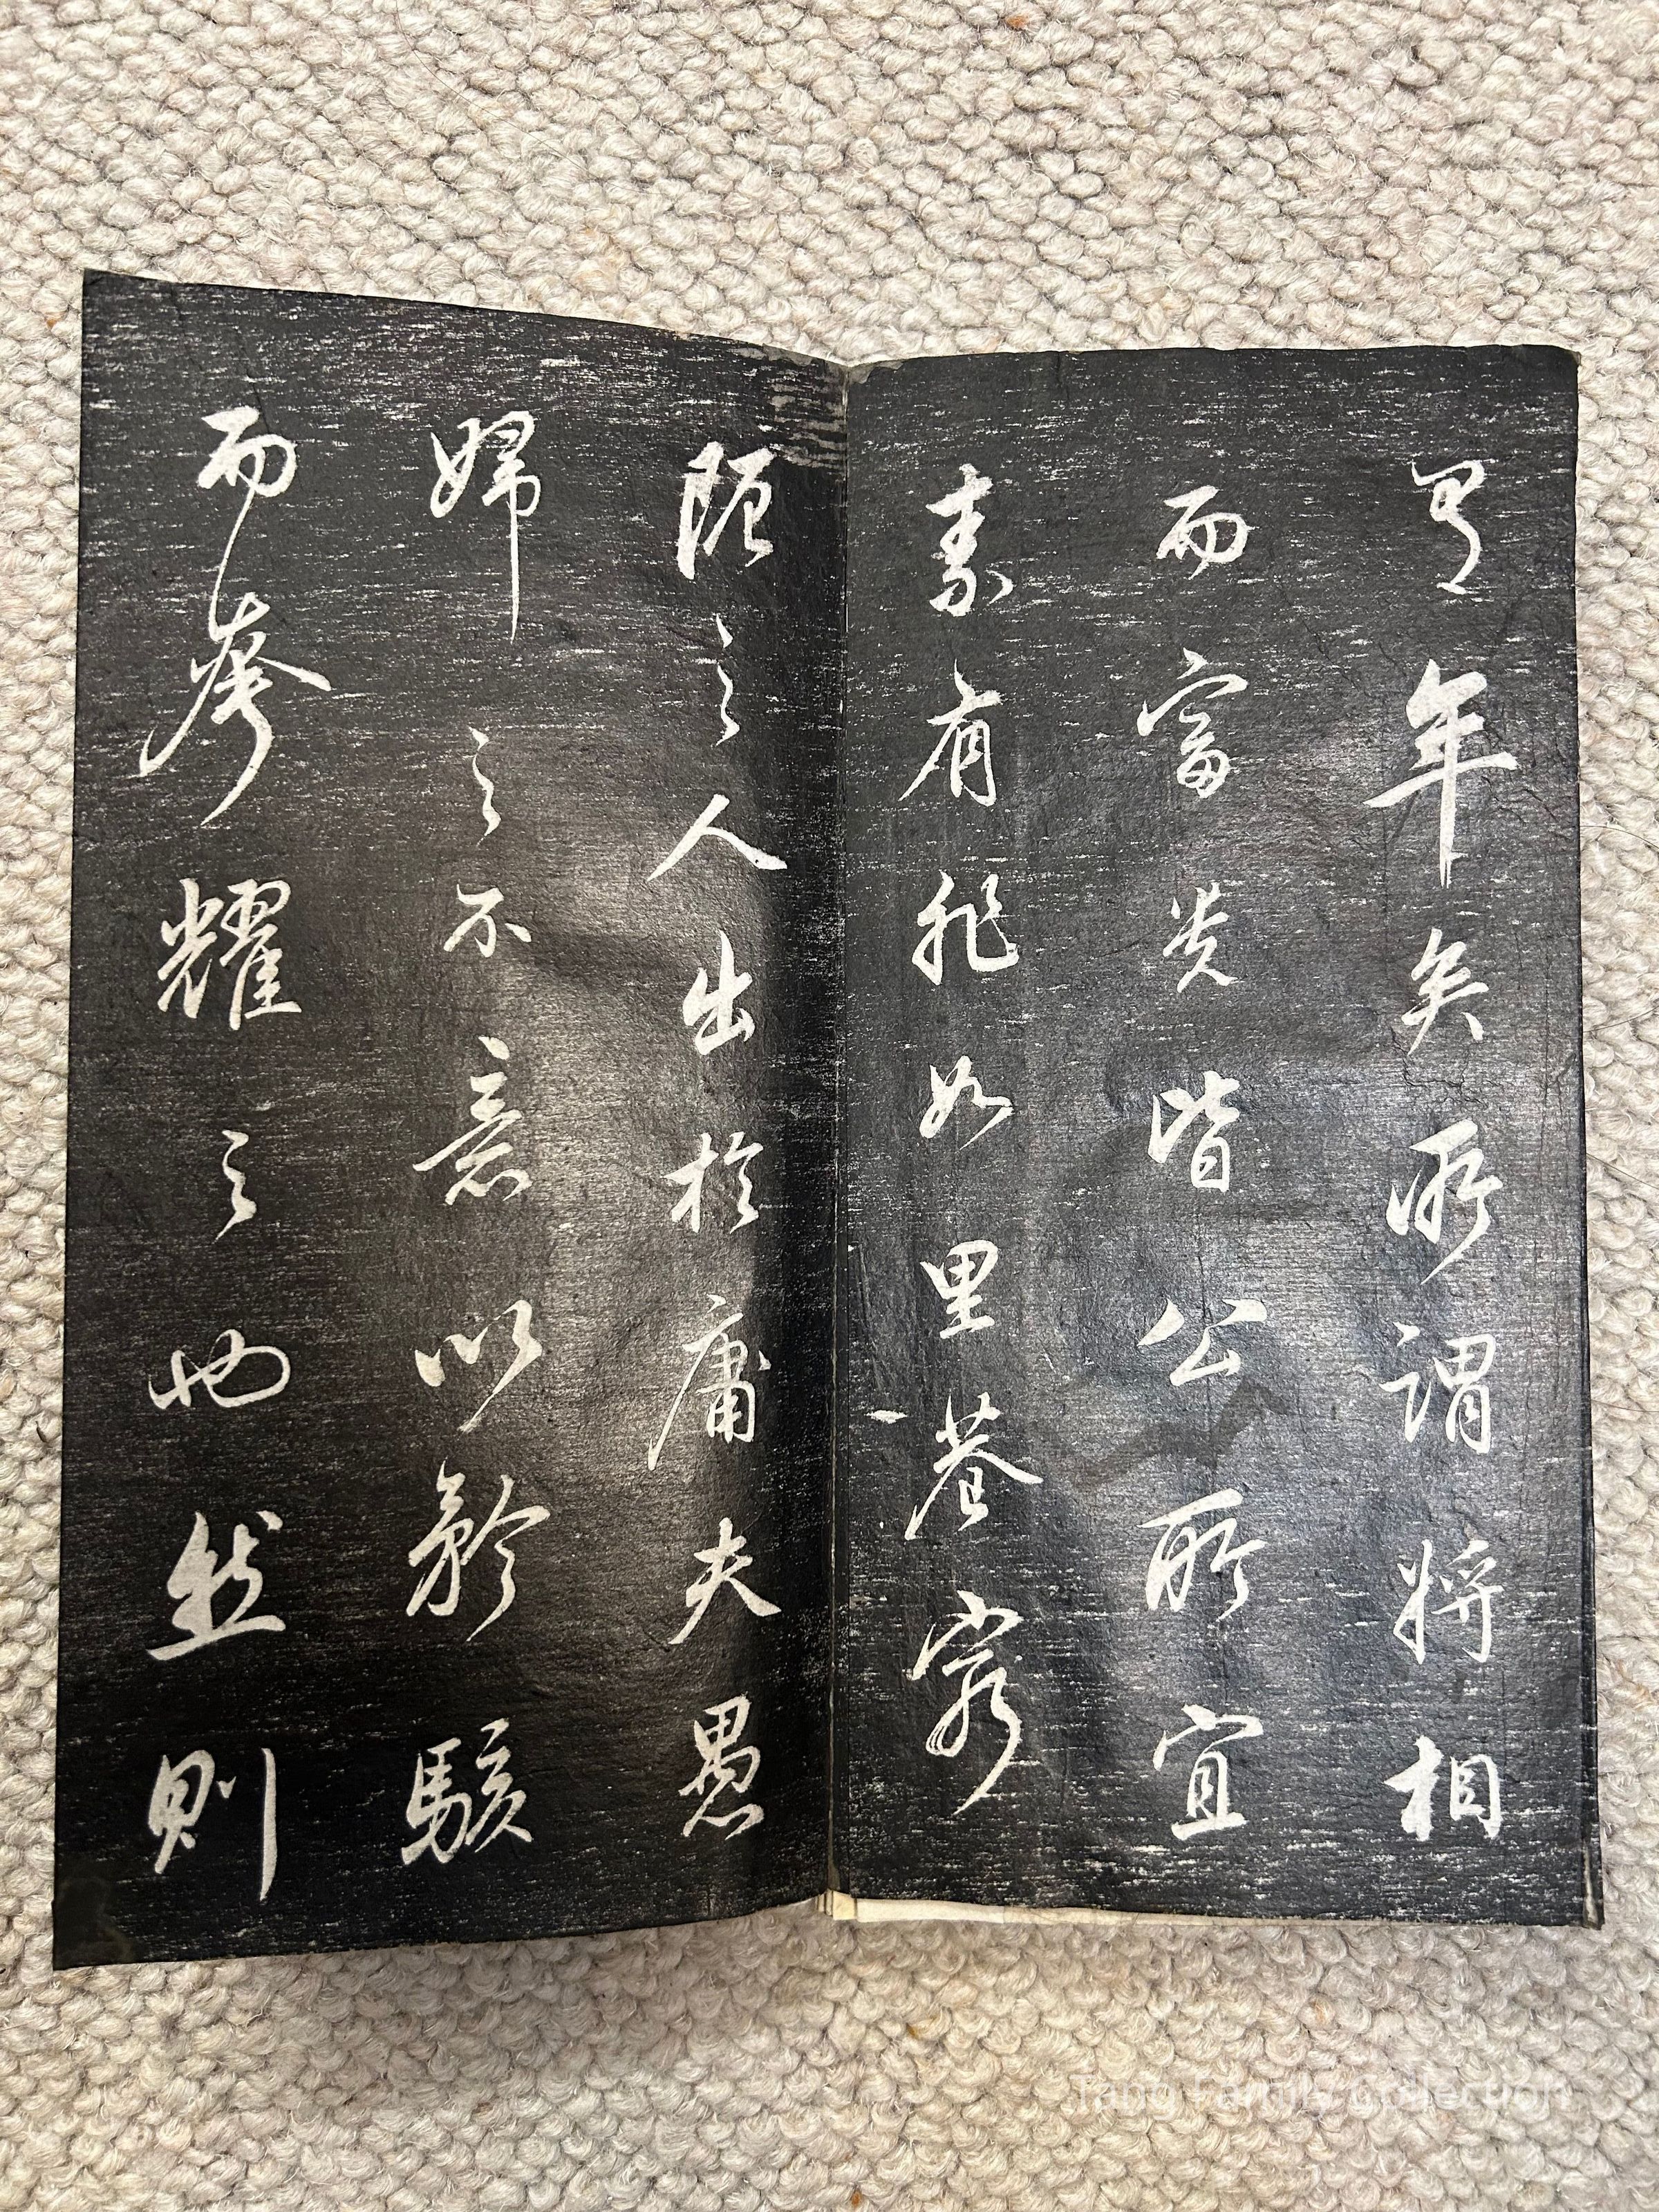 年矣所謂將相
而富貴皆公所宜
素有非如里巷窮
阨之人出於庸夫愚
婦之不意以駭
而夸耀之也然則
Tang Family Collection